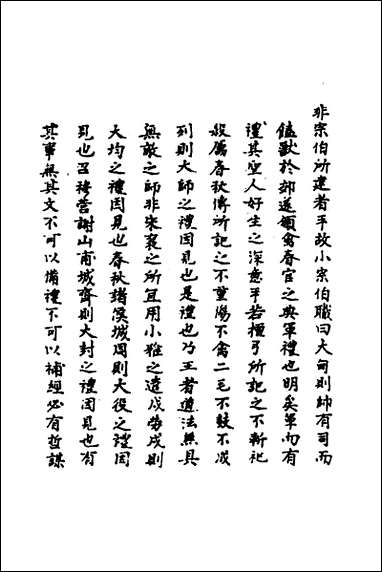 非宗伯所建者乎故小宗伯職曰大甸則帥有司而
饁獸於郊遂頒禽春官之典軍禮也明矣軍而有
禮其聖人好生之深意乎若檀弓所記之不斬祀
殺厲春秋傳所記之不重傷不禽二毛不鼓不成
列則大師之禮因見也是禮也乃王者遺法無具
無敵之師非宋襄之所宜用小雅之遣戍勞戍則
大均之禮因見也春秋諸侯城周則大役之禮因
見也召穆營謝山甫城齊則大封之禮因見也有
其事無其文不可以備禮不可以補經必有哲謀